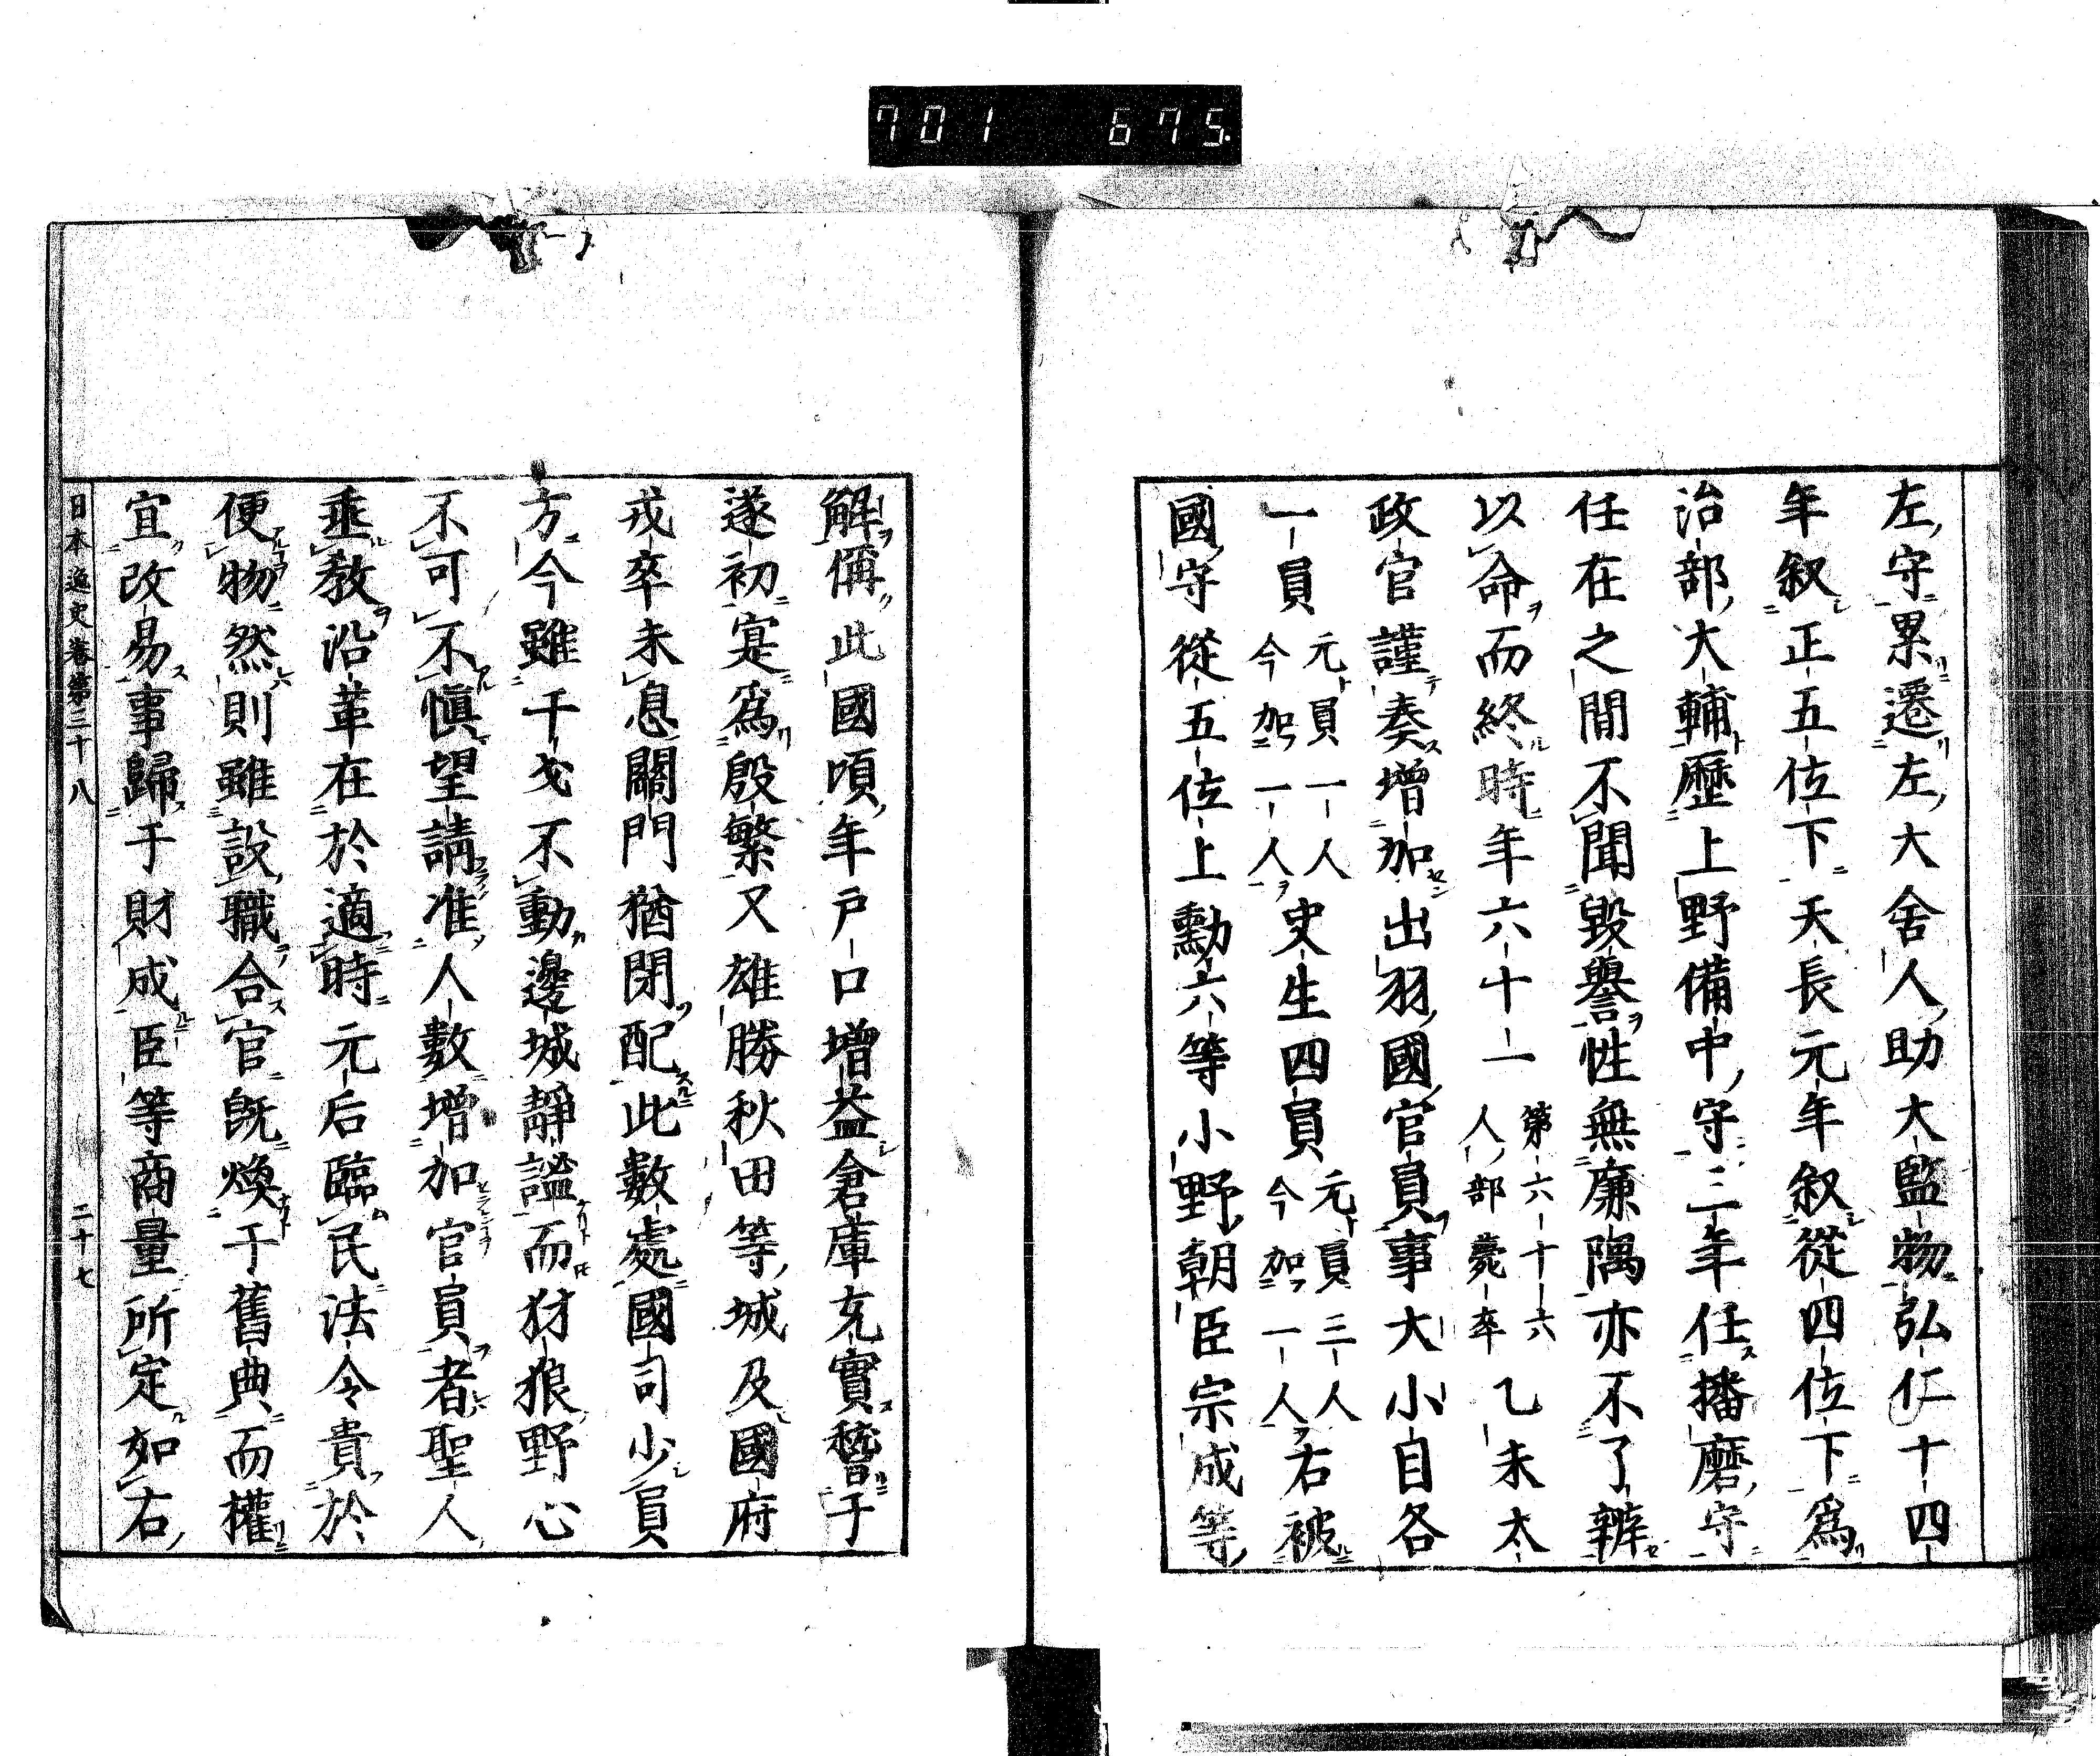 701 675
左守累遷左大舍人助大監物弘仁十四
年叙正五位下天長元年叙從四位下爲
治部大輔歷上野備中守三年任播磨守
任在之間不聞毀譽性無廉隅亦不了辨
以命而終時年六十一第六十六人部薨卒乙未太
政官謹奏增加出羽國官員事大小目各
一員元員一人今加一人史生四員元員三人今加一人右被
國守從五位上勳六等小野朝臣宗成等
解偁此國頃年戸口增益倉庫充實稽于
遂初寔爲殷繁又雄勝秋田等城及國府
戎卒未息關門猶閉配此數處國司少員
方今雖干戈不動邊城靜謐而豺狼野心
不可不愼望請准人數增加官員者聖人
垂教沿革在於適時元后臨民法令貴於
便物然則雖設職合官旣煥于舊典而權
宜改易事歸于財成臣等商量所定如右
日本逸史卷第三十八 二十七